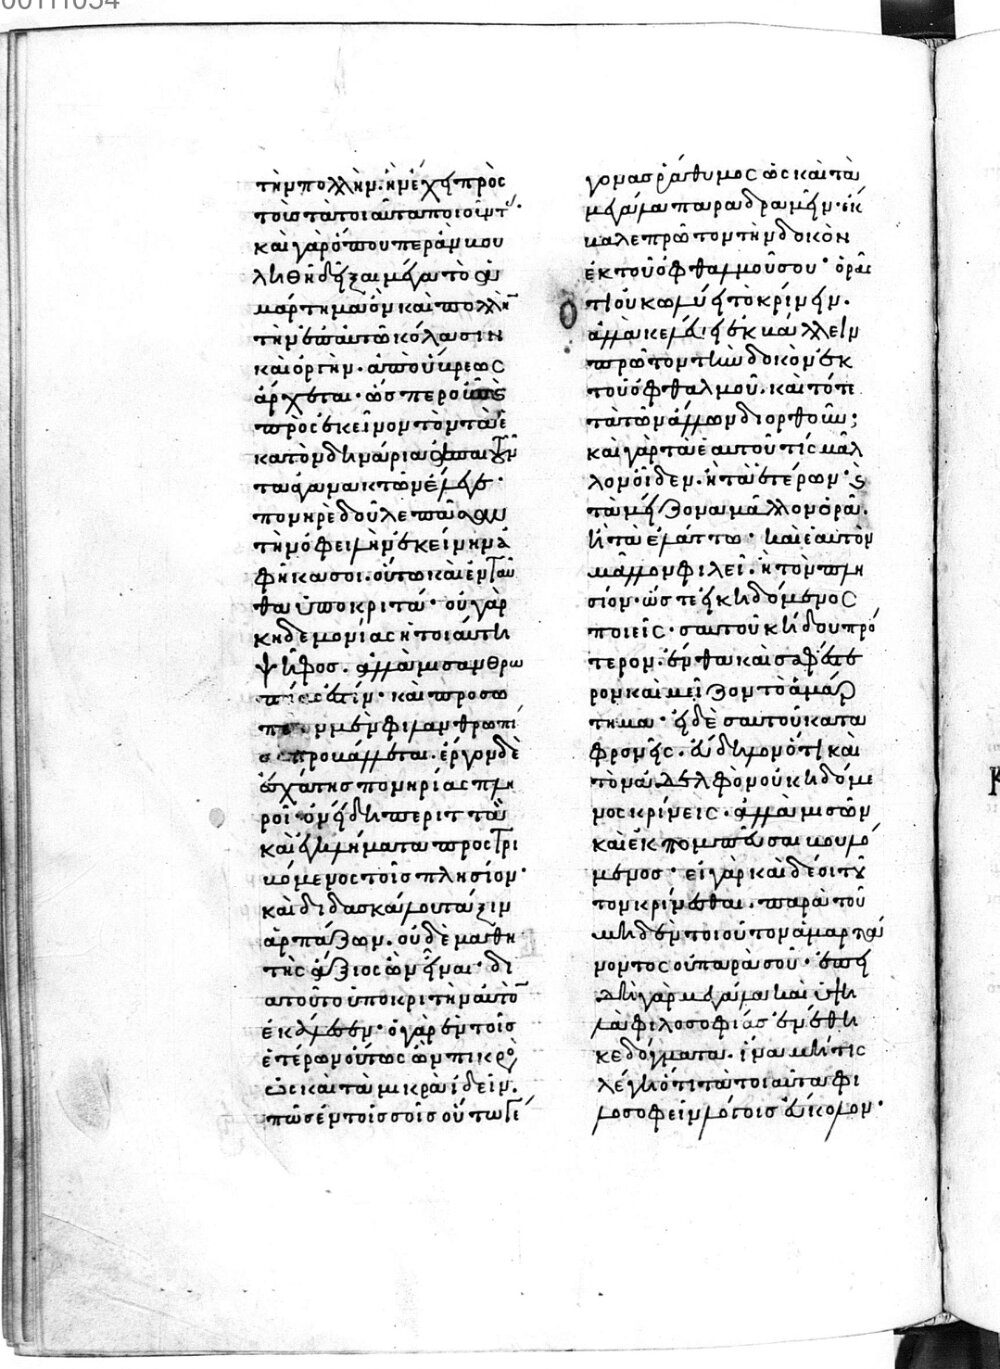 τὴν πολλὴν. ἣν ἔχει πρὸς
τοὺς τὰ τοιαῦτα ποιοῦντ(ας).
καὶ γὰρ ὅπου περ ἂν βου
ληθῆ δεῖξαι μέγα τὸ ἁ
μάρτημα ὂν καὶ πολλὴν
τὴν ἐπ' αὐτῶ κόλασιν
καὶ ὀργὴν. ἀπὸ ὕβρεως
ἄρχεται. ὥσπερ οὖν
πρὸς ἐκεῖνον τὸν τὰ ἑ
κατὸν δηνάρια
ἀγανακτῶν ἔλεγε.
πονηρὲ δοῦλε πᾶσαν
τὴν ὀφειλὴν ἐκείνην ἀ
φῆκα σοι. οὕτω καὶ ἐνταῦ
θα ὑποκριτά. οὐ γὰρ
κηδεμονίας ἡ τοιαύτη
ψῆφος. ἀλλὰ μισανθρω
πίας ἐστίν. καὶ προσω
πεῖον μὲν φιλανθρωπί
ας προβάλλεται. ἔργον δὲ
ἐσχάτης πονηρίας πλη
ροῖ. ὀνείδη περιττὰ
καὶ ἐγκλήματα προστρι
βόμενος τοῖς πλησίον.
καὶ διδασκάλου τάξιν
ἁρπάζων. οὐδὲ μαθη
τῆς ἄξιος ὢν εἶναι. δι
α τοῦτο ὑποκριτὴν αὐτὸν
ἐκάλεσεν. ὁ γὰρ ἐν τοῖς
ἑτέρων οὕτως ὢν πικρὸς
ὡς καὶ τὰ μικρὰ ἰδεῖν.
πῶς ἐν τοῖς σοῖς οὕτω γέ
γονας ράθυμος ὡς καὶ τὰ
μεγάλα παραδραμεῖν. ἔκ
βαλε πρῶτον τὴν δοκὸν
ἐκ τοῦ ὀφθαλμοῦ σου. ὁρᾶς
ὅτι οὐ κωλύει τὸ κρίνειν.
ἀλλὰ κελεύει ἐκβάλλειν
πρῶτον τὴν δοκὸν ἐκ
τοῦ ὀφθαλμοῦ. καὶ τότε
τὰ τῶν ἄλλων διορθοῦν;
καὶ γὰρ τὰ ἑαυτοῦ τίς μᾶλ
λον οἶδεν. ἢ τὰ ἑτέρων. κ(αὶ)
τὰ μείζονα μᾶλλον ὁρᾶ.
ἢ τὰ ἐλάττω. καὶ ἑαυτὸν
μᾶλλον φιλεῖ. ἢ τὸν πλη
σίον. ὥστε εἰ κηδόμενος
ποιεῖς. σαυτοῦ κήδου πρό
τερον. ἔνθα καὶ σαφέστε
ρον καὶ μεῖζον τὸ ἁμάρ
τημα. εἰ δὲ σαυτοῦ κατα
φρονεῖς. εὔδηλον ὅτι καὶ
τὸν ἀδελφὸν οὐ κηδόμε
νος κρίνεις. ἀλλὰ μισῶν
καὶ ἐκπομπεῦσαι βουλό
μενος. εἰ γὰρ καὶ δέοι τοῦ
τον κρίνεσθαι. παρὰ τοῦ
μηδὲν τοιοῦτον ἁμαρτά
νοντος οὐ παρὰ σοῦ. ἐπει
δὴ γὰρ μεγάλα καὶ ὑψη
λὰ φιλοσοφίας ἐνέθη
κε δόγματα. ἵνα μή τις
λέγη ὅτι τὰ τοιαῦτα φι
λοσοφεῖν λόγοις εὔκολον.